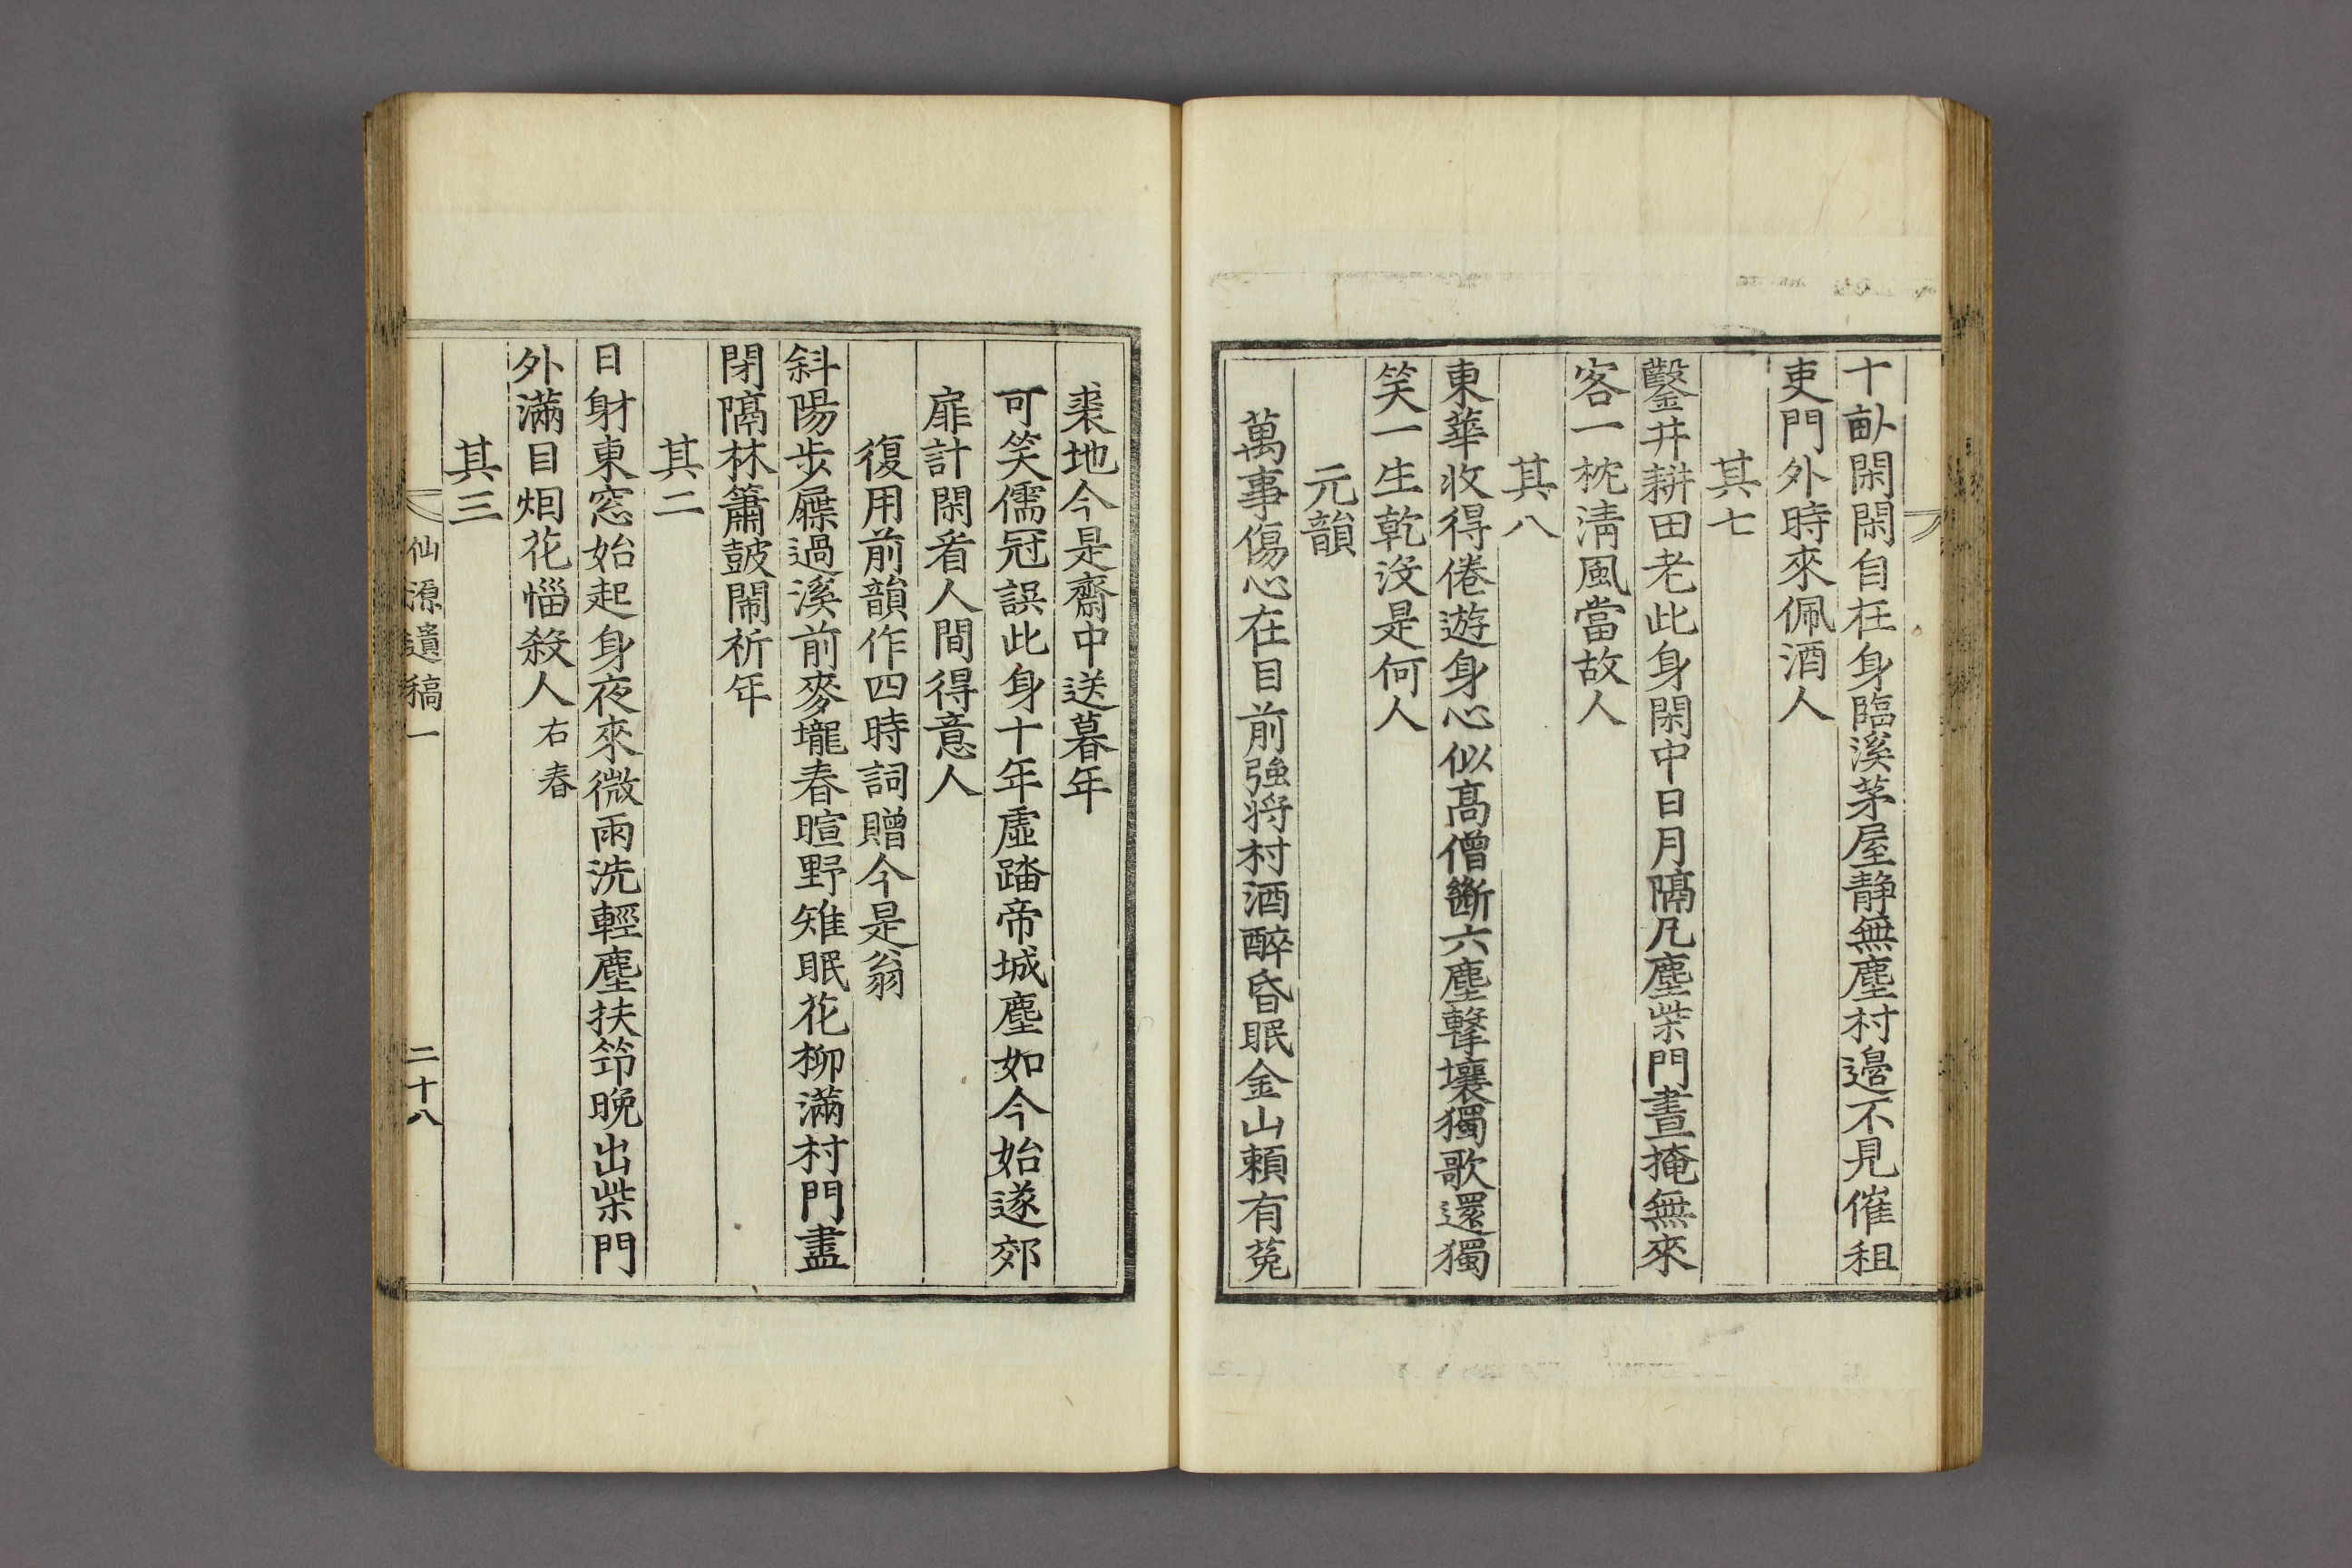 十畒閑閑自在身臨溪茅屋静無塵村邊不見催租
吏門外時來佩酒人
其七
鑿井耕田老此身閑中日月隔凡塵柴門晝掩無來
客一枕淸風當故人
其八
東華收得倦遊身心似髙僧斷六塵擊壤獨歌還獨
笑一生乾沒是何人
元韻
萬事傷心在目前強將村酒醉昏眠金山賴有菟
裘地今是齋中送暮年
可笑儒冠誤此身十年虛踏帝城塵如今始遂郊
扉計閑看人間得意人
復用前韻作四時詞贈今是翁
斜陽步屧過溪前麥壠春暄野雉眠花柳滿村門盡
閉隔林簫皷閙祈年
其二
日射東窓始起身夜來微雨洗輕塵扶笻晚出柴門
外滿目烟花惱殺人 右春
其三
仙源遺稿一 二十八